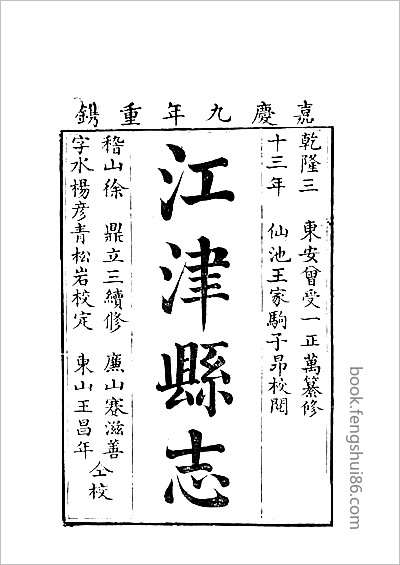 嘉慶九年重鐫
乾隆三 東安曾受一正萬纂修
十三年 仙池王家駒子昂校閱
江津縣志
稽山徐 鼎立三續修 廌山蹇滋善
字水楊彦青松岩校定 東山王昌年
仝校
book.fengshui86.com